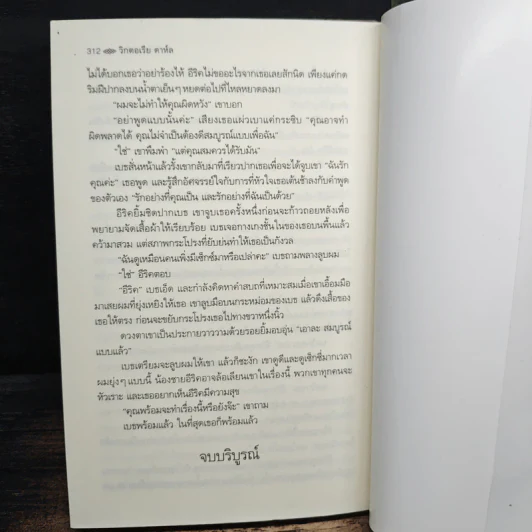 312 วิกตอเรีย ดาห์ล
ไม่ได้บอกเธอว่าอย่าร้องไห้ อีริคไม่ขออะไรจากเธอเลยสักนิด เพียงแค่กด
ริมฝีปากลงบนน้ำตาเย็นๆ หยดต่อไปที่ไหลหยาดลงมา
"ผมจะไม่ทำให้คุณผิดหวัง" เขาบอก
"อย่าพูดแบบนั้นค่ะ" เสียงเธอแผ่วเบาแค่กระซิบ "คุณอาจทำ
ผิดพลาดได้ คุณไม่จำเป็นต้องดีสมบูรณ์แบบเพื่อฉัน"
"ใช่" เขาพึมพำ "แต่คุณสมควรได้รับมัน"
เบธสั่นหน้าแล้วรั้งเขากลับมาที่เรียวปากเธอเพื่อจะได้จูบเขา "ฉันรัก
คุณค่ะ" เธอพูด และรู้สึกอัศจรรย์ใจกับการที่หัวใจเธอเต้นช้าลงกับคำพูด
ของตัวเอง "รักอย่างที่คุณเป็น และรักอย่างที่ฉันเป็นด้วย"
อีริคยิ้มชิดปากเบธ เขาจูบเธอครั้งหนึ่งก่อนจะก้าวถอยหลังเพื่อ
พยายามจัดเสื้อผ้าให้เรียบร้อย เบธเจอกางเกงชั้นในของเธอบนพื้นแล้ว
คว้ามาสวม แต่สภาพกระโปรงที่ยับย่นทำให้เธอเป็นกังวล
"ฉันดูเหมือนคนเพิ่งมีเซ็กซ์มาหรือเปล่าคะ" เบธถามพลางลูบผม
"ใช่" อีริคตอบ
"อีริค" เบธเอ็ด และกำลังคิดหาคำสบถที่เหมาะสมเมื่อเขาเอื้อมมือ
มาเสยผมที่ยุ่งเหยิงให้เธอ เขาลูบมือบนกระหม่อมของเบธ แล้วดึงเสื้อของ
เธอให้ตรง ก่อนจะขยับกระโปรงเธอไปทางขวาหนึ่งนิ้ว
ดวงตาเขาเป็นประกายวาววามด้วยรอยยิ้มอบอุ่น "เอาละ สมบูรณ์
แบบแล้ว"
เบธเตรียมจะลูบผมให้เขา แล้วก็ชะงัก เขาดูดีและดูเซ็กซี่มากเวลา
ผมยุ่งๆ แบบนี้ น้องชายอีริคอาจล้อเลียนเขาในเรื่องนี้ พวกเขาทุกคนจะ
หัวเราะ และเธออยากเห็นอีริคมีความสุข
"คุณพร้อมจะทำเรื่องนี้หรือยังจ๊ะ" เขาถาม
เบธพร้อมแล้ว ในที่สุดเธอก็พร้อมแล้ว
จบบริบูรณ์